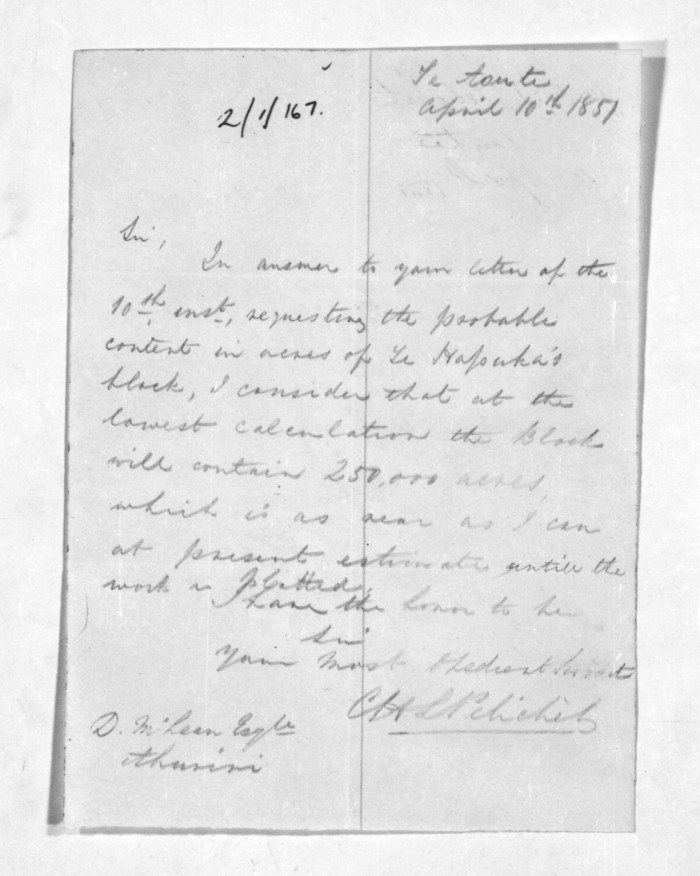 Te Aute
April 10th 1851
2/1/167.
Sir,
In answer to your letter of the
10th inst, requesting the probable
content in acres of Te Hapuka's
block, I consider that at the
lowest calculation the block
will contain 250,000 acres,
which is as near as I can
at present estimate untill the
work is platted.
I have the honor to be
Sir
Your most obedient Servant
C H L Pelichet
D. McLean Esqre
Ahuriri